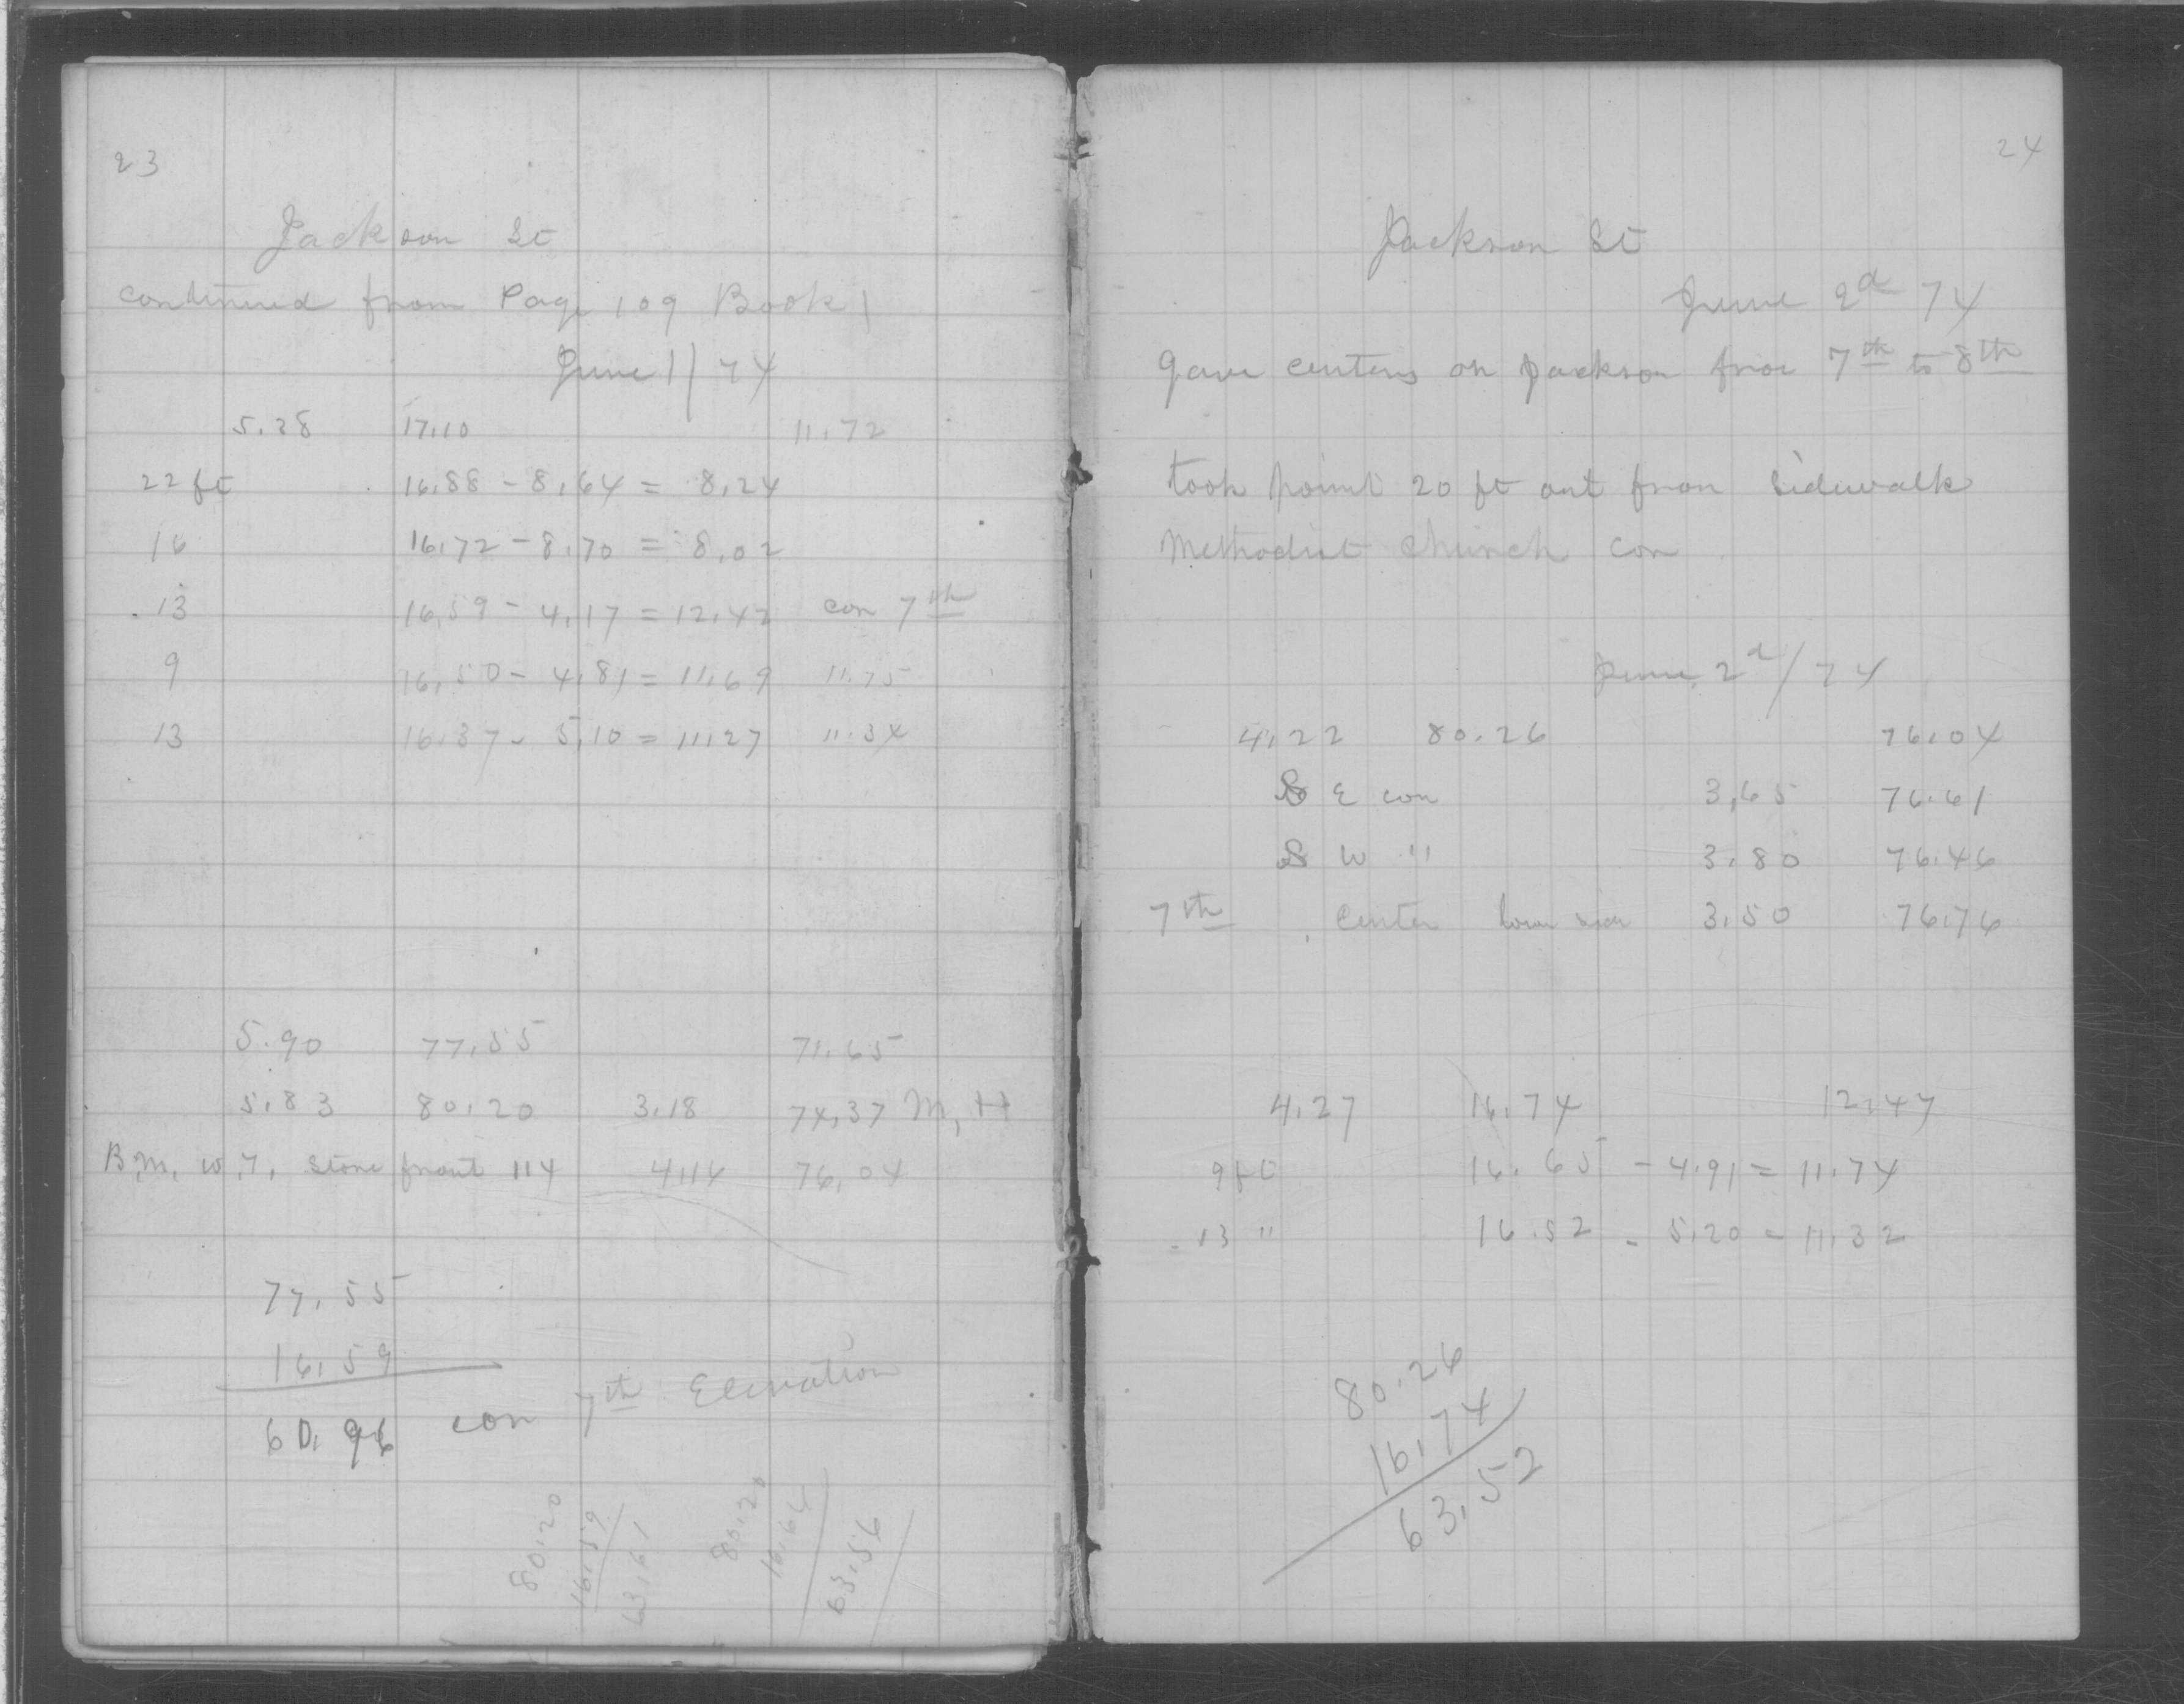 23
Jackson St
continued from Page 109 Book 1
June 1/74
5.38 17.10 11.72
22 ft 16.88 - 8.64 = 8.24
16 16.72 - 8.70 = 8.02
13 16.59 - 4.17 = 12.42 cor 7th
9 16.50 - 4.81 = 11.69 11.75
13 16.37 - 5.10 = 11.27 11.34
5.90 77.55 71.65
5.83 80.20 3.18 74.37 M, H
B.M. W.T. Stone front 114 4.16 76.04
77.55
16.59
60.96 cor 7th Elevation
80.20
16.59
63.61
80.20
16.64
63.56
24
Jackson St
June 2d 74
Gave centers on Jackson from 7th to 8th
took point 20 ft out from Sidewalk
Methodist Church cor
June 2d/74
4.22 80.26 76.04
S E cor 3.65 76.61
S W " 3.80 76.46
7th Center lower side 3.50 76.76
4.27 16.74 12.47
9 ft 16.65 - 4.91 = 11.74
13 " 16.52 - 5.20 = 11.32
80.26
16.74
63.52